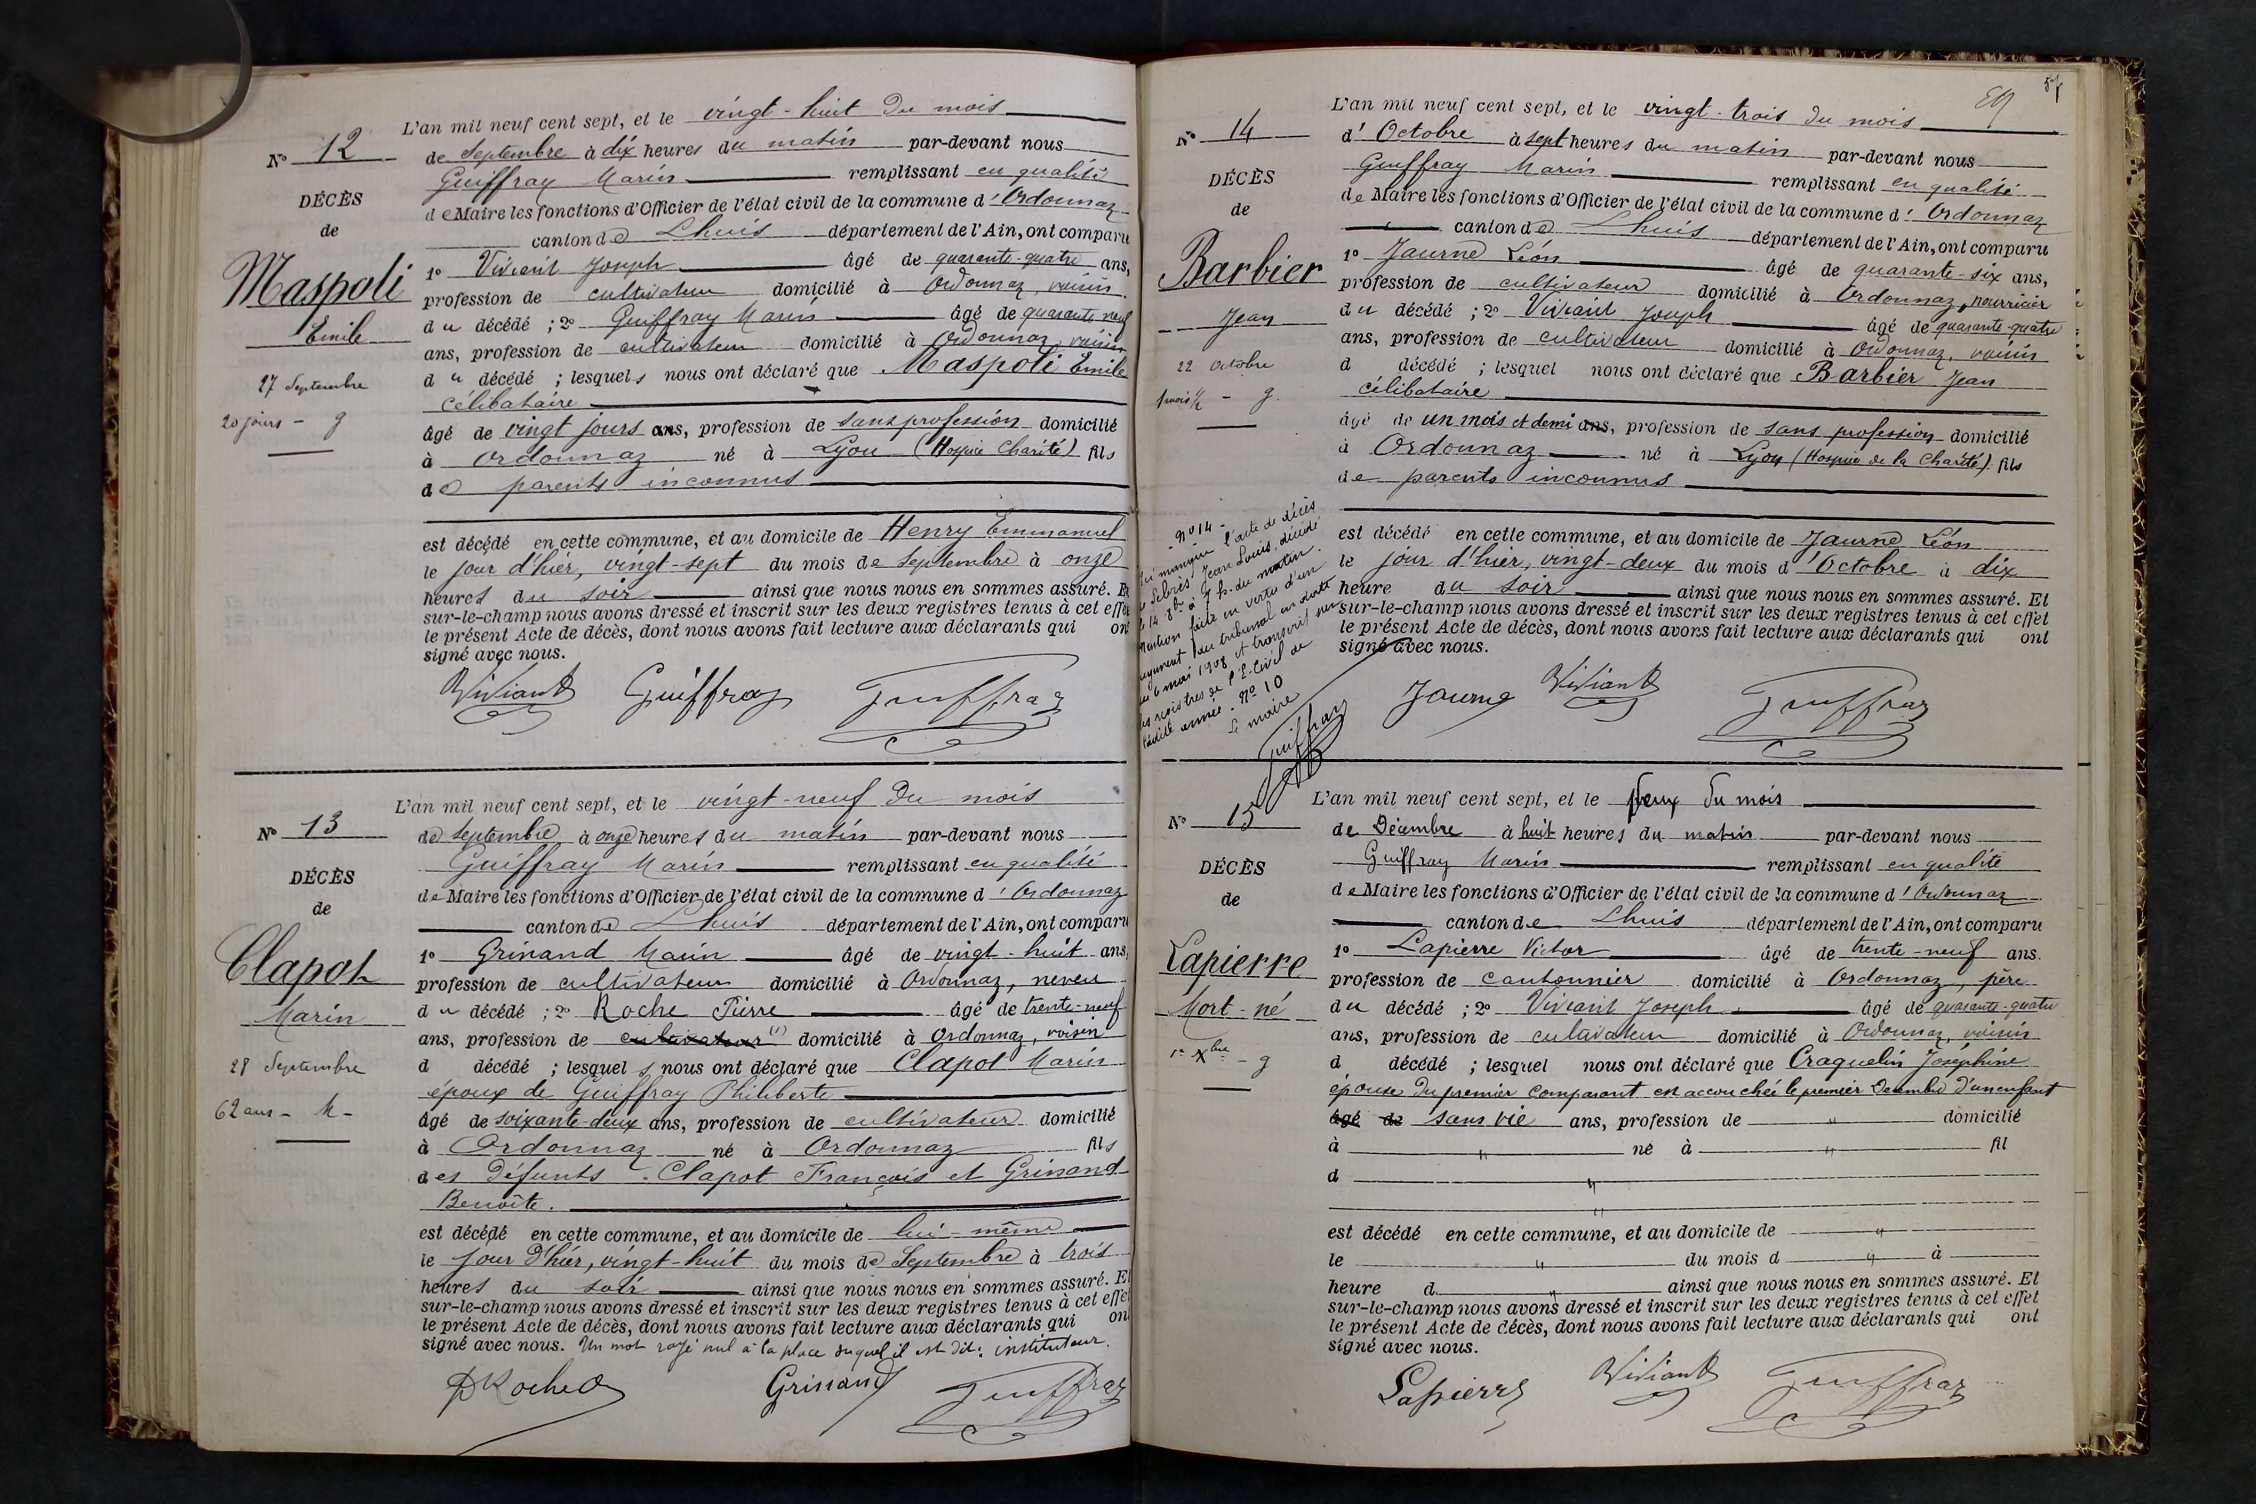 L'an mil neuf cent sept, et le vingt-huit du mois
N° 12
de Septembre à dix heures du matin par-devant nous
Guiffray Marin remplissant en qualité
DÉCÈS
de Maire les fonctions d'Officier de l'état civil de la commune d'Ordonnaz
de
canton de Lhuis département de l'Ain, ont comparu
Maspoli
1° Viviant Joseph âgé de quarante-quatre ans,
profession de cultivateur domicilié à Ordonnaz, voisin
Emile
du décédé ; 2° Guiffray Marin âgé de quarante neuf
ans, profession de cultivateur domicilié à Ordonnaz, voisin
27 Septembre
du décédé ; lesquels nous ont déclaré que Maspoli Emile
célibataire
20 jours - g
âgé de vingt jours ans, profession de sans profession domicilié
à Ordonnaz né à Lyon (Hospice Charité) fils
de parents inconnus
est décédé en cette commune, et au domicile de Henry Emmanuel
le jour d'hier, vingt-sept du mois de Septembre à onze
heures du soir ainsi que nous nous en sommes assuré. Et
sur-le-champ nous avons dressé et inscrit sur les deux registres tenus à cet effet
le présent Acte de décès, dont nous avons fait lecture aux déclarants qui ont
signé avec nous.
Viviant Guiffray Guiffray
L'an mil neuf cent sept, et le vingt-neuf du mois
N° 13
de septembre à onze heures du matin par-devant nous
Guiffray Marin remplissant en qualité
DÉCÈS
de Maire les fonctions d'Officier de l'état civil de la commune d'Ordonnaz
de
canton de Lhuis département de l'Ain, ont comparu
Clapot
1° Grinand Marin âgé de vingt-huit ans,
profession de cultivateur domicilié à Ordonnaz, neveu
Marin
du décédé ; 2° Roche Pierre âgé de trente-neuf
ans, profession de cultivateur (1) domicilié à Ordonnaz, voisin
28 Septembre
d décédé ; lesquels nous ont déclaré que Clapot Marin
époux de Guiffray Philiberte
62 ans - M -
âgé de soixante-deux ans, profession de cultivateur domicilié
à Ordonnaz né à Ordonnaz fils
des défunts Clapot François et Grinand
Benoîte.
est décédé en cette commune, et au domicile de lui-même
le jour d'hier, vingt-huit du mois de Septembre à trois
heures du soir ainsi que nous nous en sommes assuré. Et
sur-le-champ nous avons dressé et inscrit sur les deux registres tenus à cet effet
le présent Acte de décès, dont nous avons fait lecture aux déclarants qui ont
signé avec nous. Un mot rayé nul à la place duquel il est dit : instituteur.
P Roche Grinand Guiffray
L'an mil neuf cent sept, et le vingt-trois du mois
N° 14
d'Octobre à sept heures du matin par-devant nous
Guiffray Marin remplissant en qualité
DÉCÈS
de Maire les fonctions d'Officier de l'état civil de la commune d'Ordonnaz
de
canton de Lhuis département de l'Ain, ont comparu
Barbier
1° Jaurne Léon âgé de quarante-six ans,
profession de cultivateur domicilié à Ordonnaz, nourricier
Jean
du décédé ; 2° Viviant Joseph âgé de quarante-quatre
ans, profession de cultivateur domicilié à Ordonnaz, voisin
22 Octobre
d décédé ; lesquel nous ont déclaré que Barbier Jean
célibataire
1 mois ½ - g.
âgé de un mois et demi ans, profession de sans profession domicilié
à Ordonnaz né à Lyon (Hospice de la Charité) fils
de parents inconnus
est décédé en cette commune, et au domicile de Jaurne Léon
le jour d'hier, vingt-deux du mois d'Octobre à dix
heure du soir ainsi que nous nous en sommes assuré. Et
sur-le-champ nous avons dressé et inscrit sur les deux registres tenus à cet effet
le présent Acte de décès, dont nous avons fait lecture aux déclarants qui ont
signé avec nous.
Jaurne Viviant Guiffray
- N° 14 -
Ici manque l'acte de décès
Jean Louis, décédé
le 14 8bre à 7 h. du matin.
Mention faite en vertu d'un
jugement du tribunal en date
du 6 mai 1908 et transcrit sur
les registres de l'E. Civil de
ladite année. N° 10
Le maire
Guiffray
L'an mil neuf cent sept, et le deux du mois
N° 15
de Décembre à huit heures du matin par-devant nous
Guiffray Marin remplissant en qualité
DÉCÈS
de Maire les fonctions d'Officier de l'état civil de la commune d'Ordonnaz
de
canton de Lhuis département de l'Ain, ont comparu
Lapierre
1° Lapierre Victor âgé de trente-neuf ans.
profession de cantonnier domicilié à Ordonnaz, père
Mort-né
du décédé ; 2° Viviant Joseph âgé de quarante-quatre
ans, profession de cultivateur domicilié à Ordonnaz, voisin
1er Xbre - g
d décédé ; lesquel nous ont déclaré que Craquelin Joséphine
épouse du premier comparant est accouchée le premier Décembre d'un enfant
âgé de sans vie ans, profession de " domicilié
à " né à " fil
d "
"
est décédé en cette commune, et au domicile de "
le " du mois d " à
heure d " ainsi que nous nous en sommes assuré. Et
sur-le-champ nous avons dressé et inscrit sur les deux registres tenus à cet effet
le présent Acte de décès, dont nous avons fait lecture aux déclarants qui ont
signé avec nous.
Lapierre Viviant Guiffray